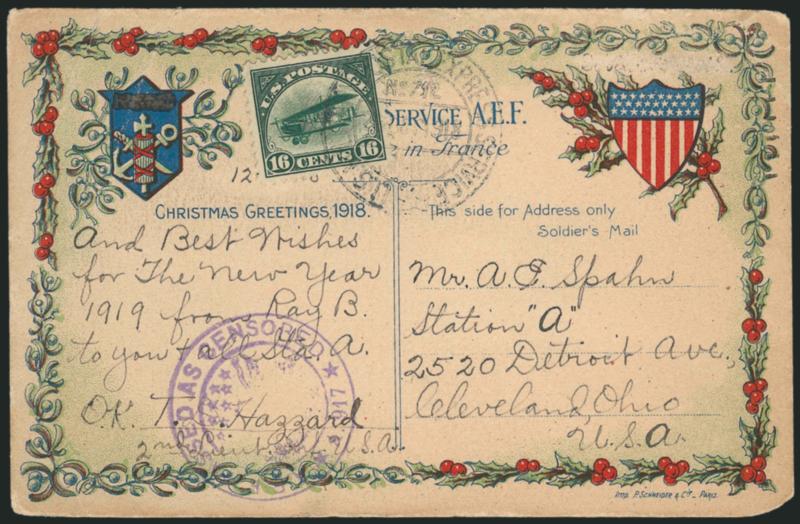 U.S. POSTAGE
16 CENTS 16
SERVICE A.E.F.
in France
12
8
CHRISTMAS GREETINGS, 1918.
And Best Wishes
for The New Year
1919 from Ray B.
to you + all Sta. A.
O.K. T. C. Hazzard
2nd Lieut U.S.A.
AS CENSORED
This side for Address only
Soldier's Mail
Mr. A. E. Spahn
Station "A"
2520 Detroit Ave,
Cleveland, Ohio
U.S.A.
IMP. P. SCHNEIDER & Cie - PARIS.